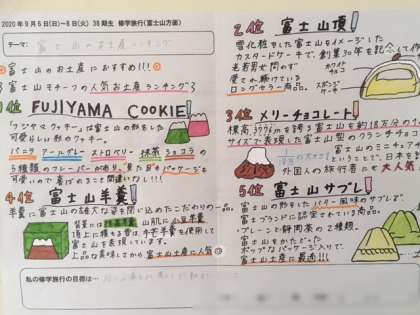 2020年9月6日(日)~8日(火) 38期生 修学旅行(富士山方面)
テーマ:
富士山のお土産におすすめ!!
富士山モチーフの人気お土産ランキング
1位 FUJIYAMA COOKIE
「フジヤマクッキー」は富士山の形をした
可愛らしい形のクッキー。
バニラ アールグレイ ストロベリー 抹茶 ショコラの
5種類のフレーバーがあり、見た目もパッケージも
可愛いので喜ばれること間違いなし!!!
4位 富士山羊羹
羊羹に富士山の雄大な姿を閉じ込めたこだわりの一品。
背景には抹茶羊羹 山肌に小豆羊羹
頂上に積もる雪は、手芒羊羹を使用して
富士山を表現しています。
上品な美味しさから富士山土産に人気
私の修学旅行の目標は…
2位 富士山頂
雪化粧をした富士山をイメージした
カスタードケーキで、創業30年を記念して作
老若男女問わず
愛され続けている
ロングセラー商品。
ホワイト
チョコ
スポンジ
ケーキ
3位 メリーチョコレート
標高3776mを誇る富士山を約18万分の
サイズで表現した富士山型のクランチチョコ
富士山のミニチュア
ということで、日本を
外国人の旅行者にも大人気
5位 富士山サブレ
富士山の形をしたバター風味のサブレで、
富士ブランドに認定されている商品。
プレーンと静岡茶の2種類。
富士山をかたどった
ポップなパッケージ入りで、
富士山土産に最適!!!